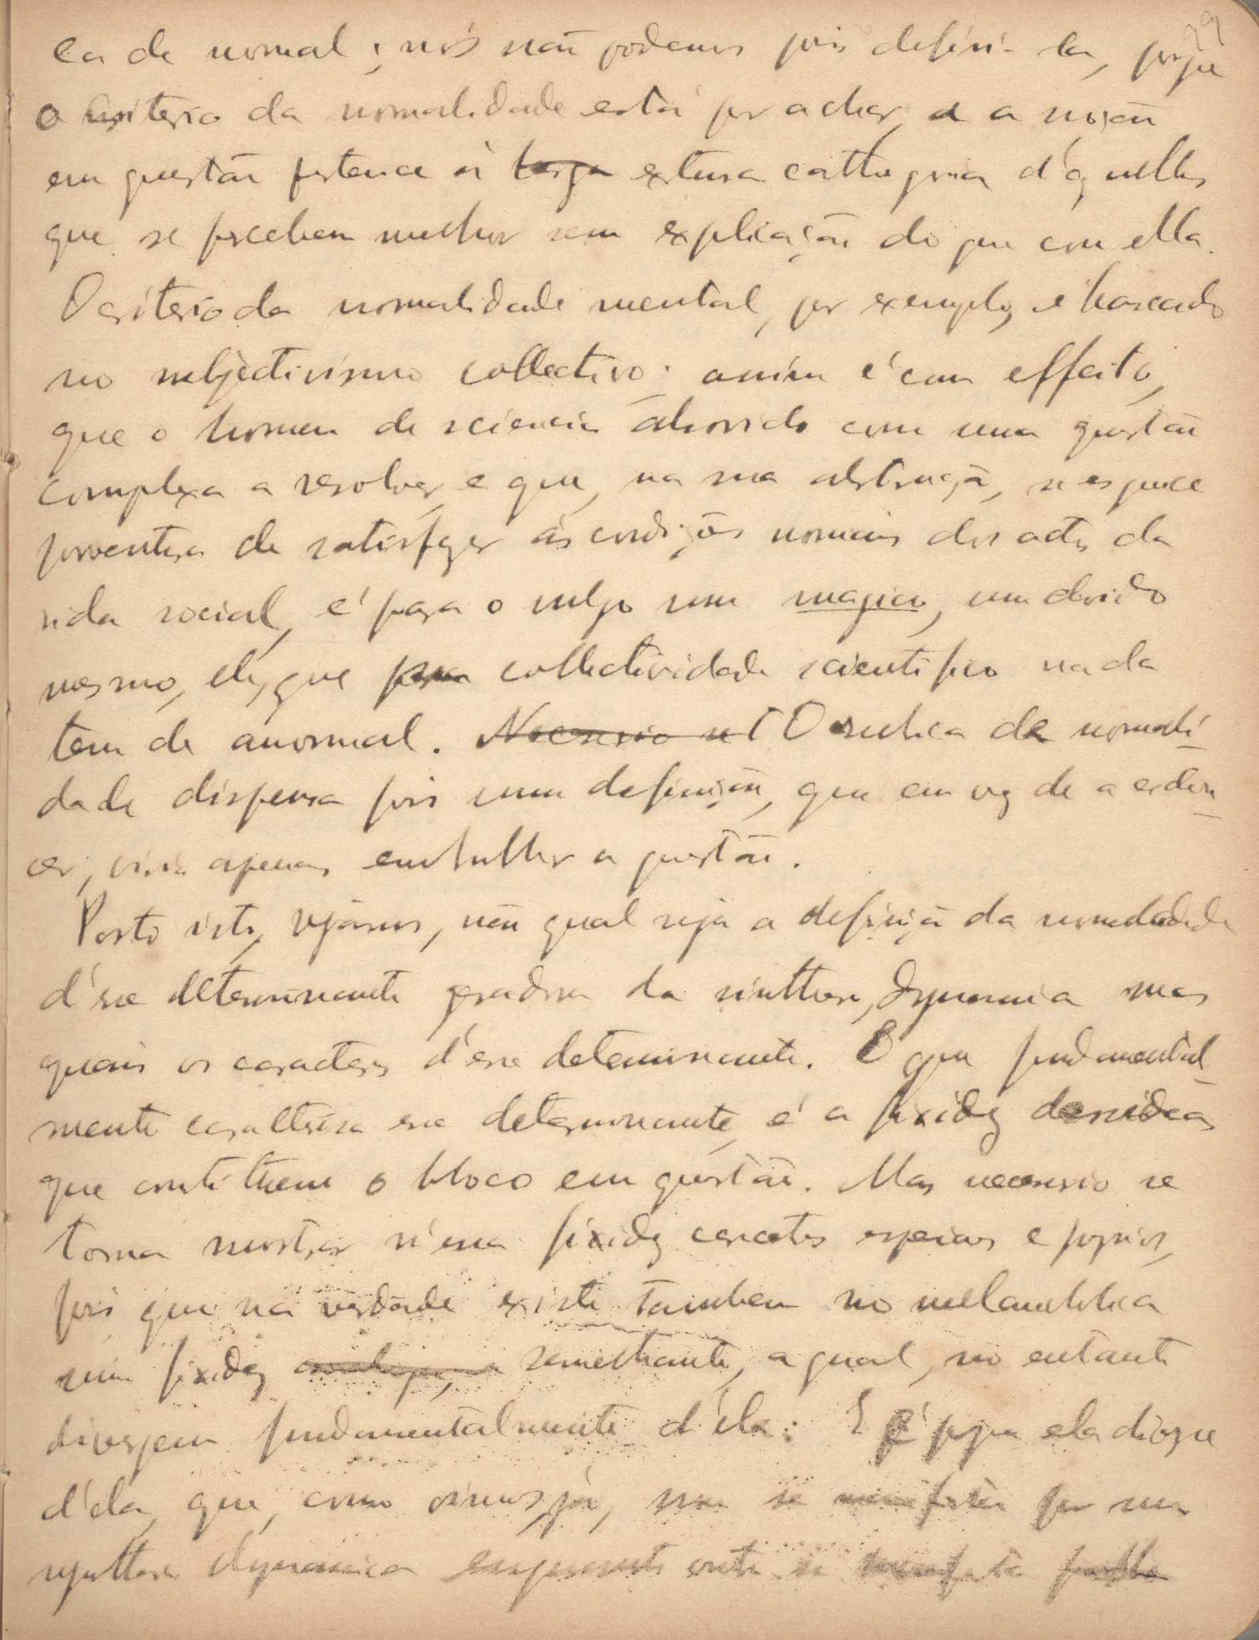 ca de normal; nós nao podemos pois definil-la, porque
o criterio da normalidade está por achar e a noção
em questão pertence á larga extensa cathegoria d'aquellas
que se percebem melhor sem explicação do que com ella.
O criterio da normalidade mental, por exemplo, é baseado
no subjectivismo collectivo; assim é com effeito,
que o homem de sciencia absorvido com uma questão
complexa a resolver, e que, na sua abstracção, se esquece
porventura de satisfazer ás condições normaes dos actos da
vida social, é para o vulgo um magico, um doido
mesmo, elle, que para collectividade scientifica nada
tem de anormal. Necessario se O da normali-
dade dispensa pois uma definição, que em vez de a esclare-
cer, viria apenas embrulhar a questão.
Posto isto, vejamos, não qual seja a definição da normalidade
d'esse determinante da synthese dynamica mas
quaes os caracteres d'esse determinante. O que fundamental-
mente caracterisa esse determinante, é a fixidez das ideias
que constituem o bloco em questão. Mas necessario se
torna mostrar n'essa fixidez caracteres especiaes e proprios,
pois que na verdade existe tambem no melancholico
uma fixidez semelhante, a qual, no entanto
divergem fundamentalmente d'ela: E é porque ela diverge
d'ela, que, como vimos já, não se manifesta por uma
synthese dynamica se manifesta